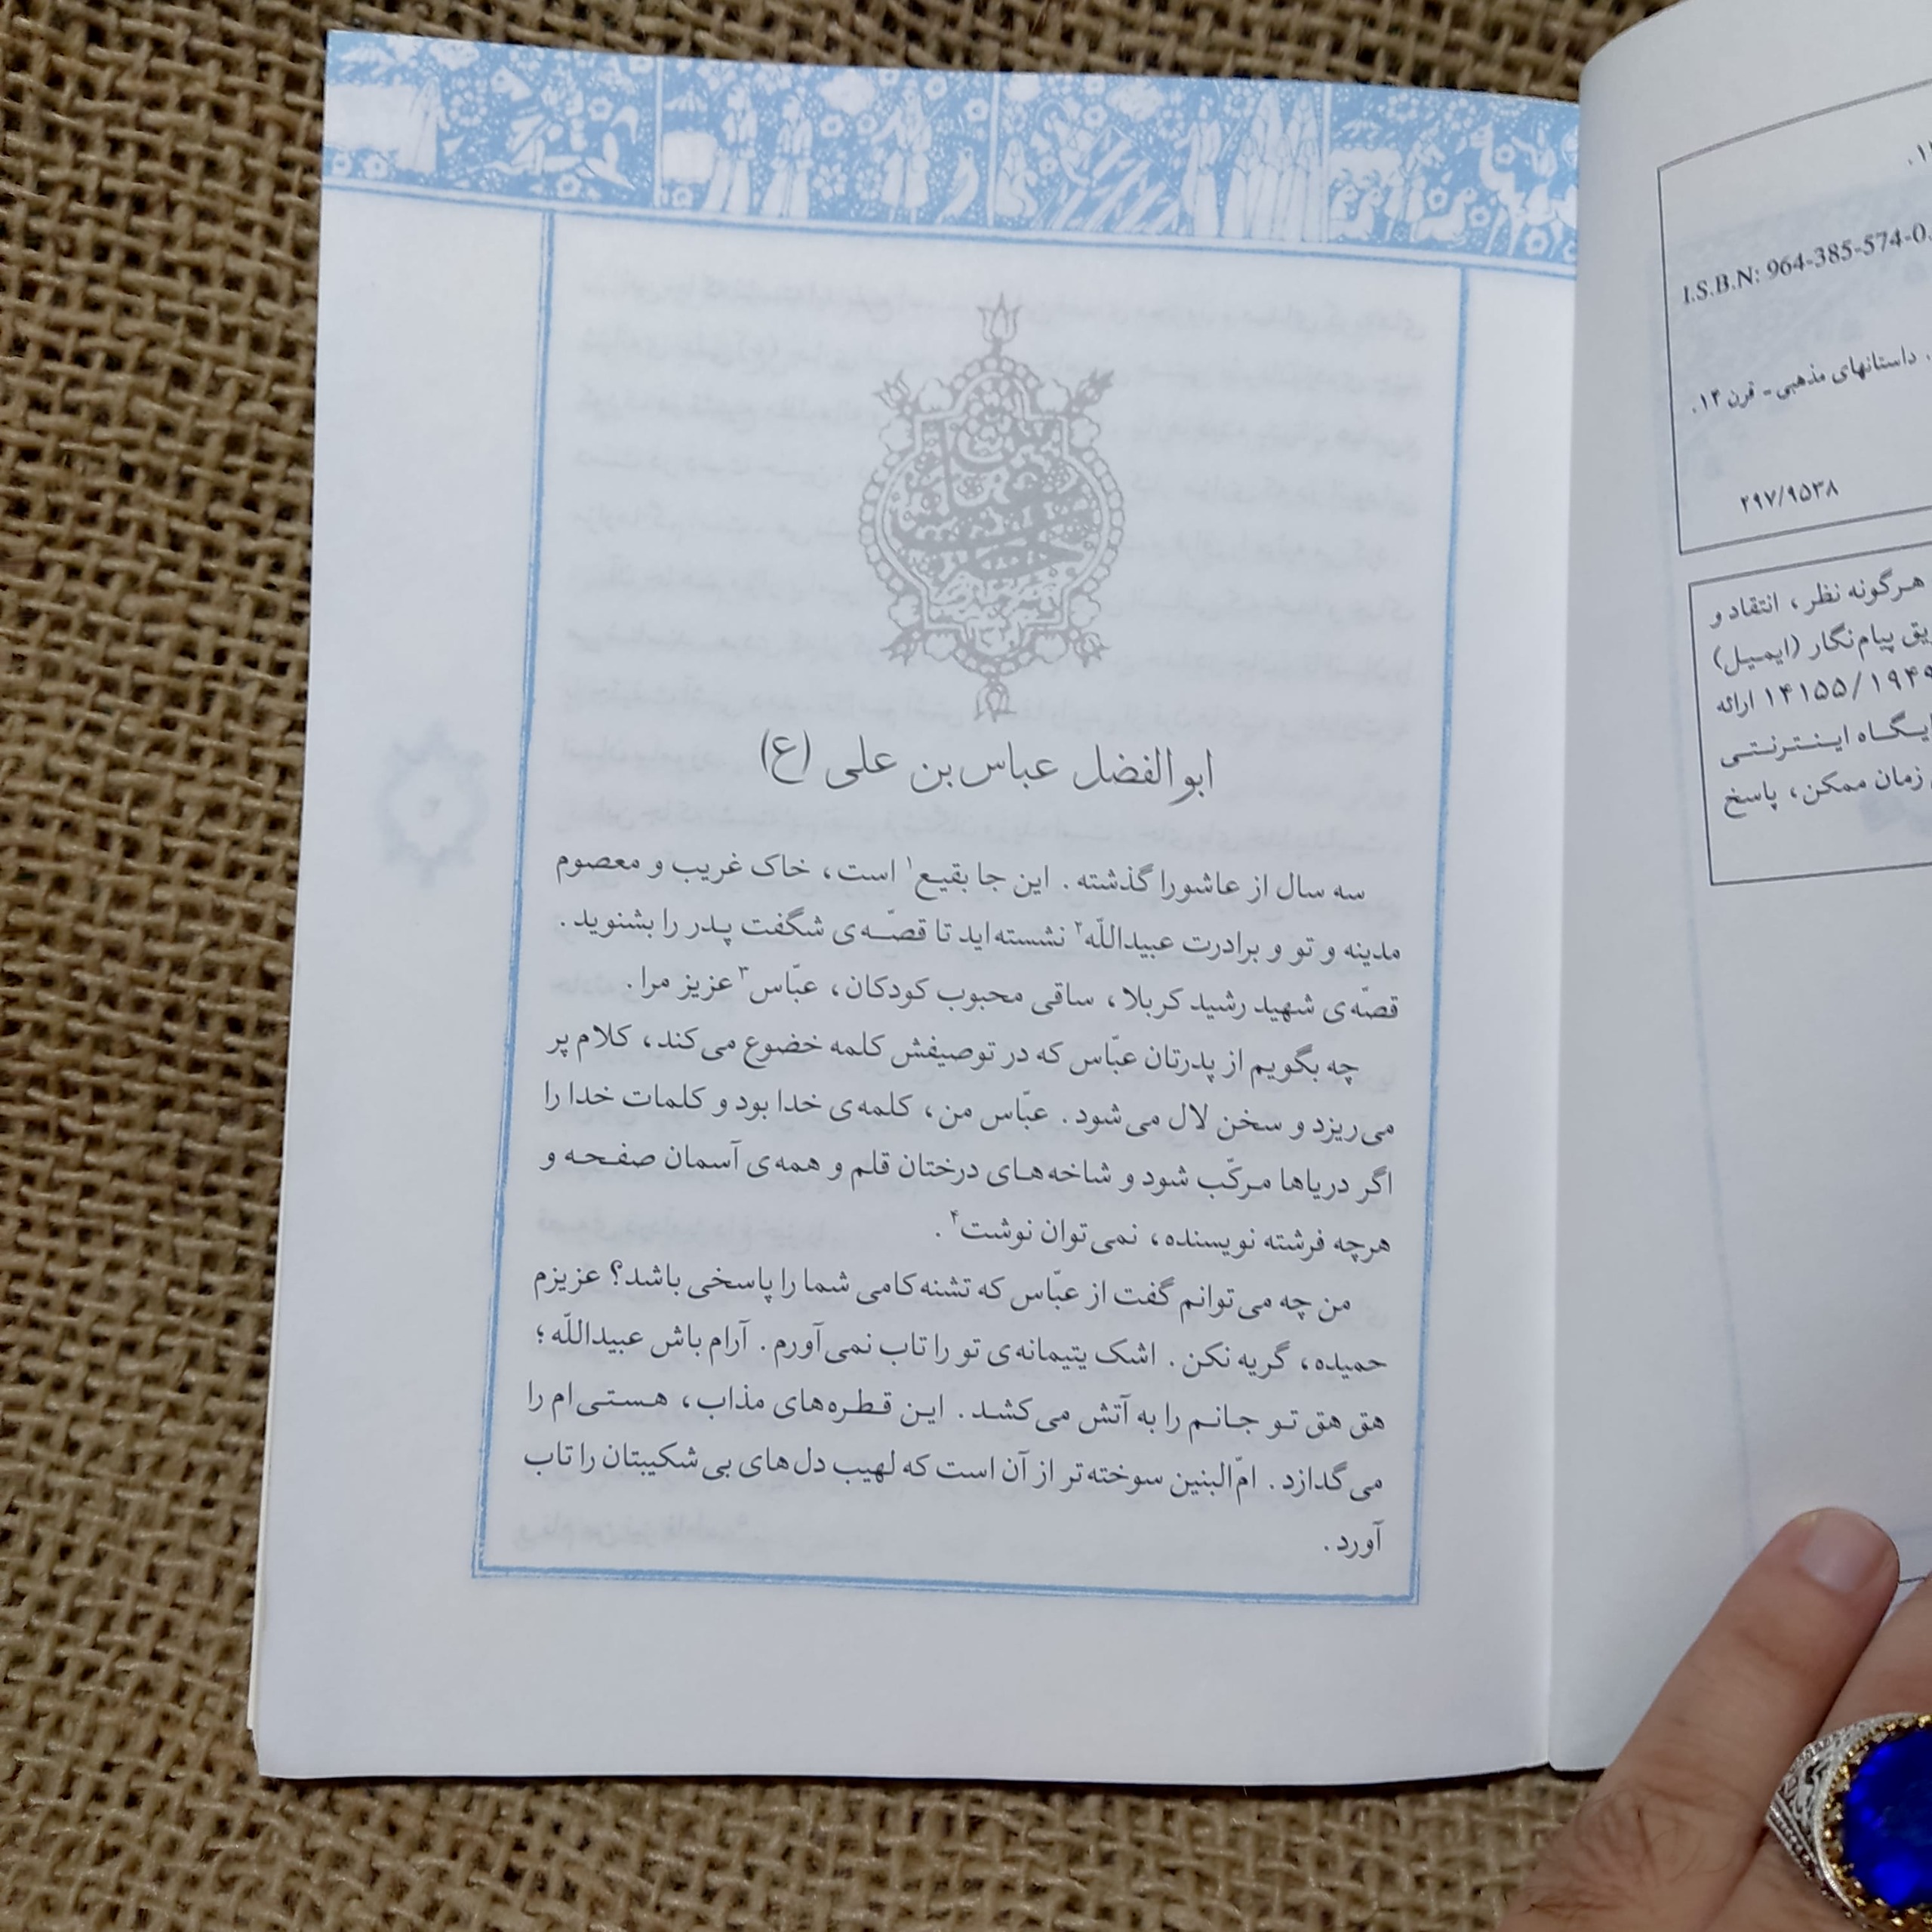 ابوالفضل عباس بن علی (ع)
سه سال از عاشورا گذشته. این جا بقیع۱ است، خاک غریب و معصوم
مدینه و تو و برادرت عبیداللّه۲ نشسته‌اید تا قصّه‌ی شگفت پدر را بشنوید.
قصّه‌ی شهید رشید کربلا، ساقی محبوب کودکان، عبّاس۳ عزیز مرا.
چه بگویم از پدرتان عبّاس که در توصیفش کلمه خضوع می‌کند، کلام پر
می‌ریزد و سخن لال می‌شود. عبّاس من، کلمه‌ی خدا بود و کلمات خدا را
اگر دریاها مرکّب شود و شاخه‌های درختان قلم و همه‌ی آسمان صفحه و
هرچه فرشته نویسنده، نمی‌توان نوشت۴.
من چه می‌توانم گفت از عبّاس که تشنه‌کامی شما را پاسخی باشد؟ عزیزم
حمیده، گریه نکن. اشک یتیمانه‌ی تو را تاب نمی‌آورم. آرام باش عبیداللّه؛
هق هق تو جانم را به آتش می‌کشد. این قطره‌های مذاب، هستی‌ام را
می‌گدازد. امّ‌البنین سوخته‌تر از آن است که لهیب دل‌های بی‌شکیبتان را تاب
آورد.
I.S.B.N: 964-385-574-0
. داستانهای مذهبی - قرن ۱۴.
۲۹۷/۹۵۳۸
هرگونه نظر، انتقاد و
پیام‌نگار (ایمیل)
۱۴۱۵۵/۱۹۴۹ ارائه
اینترنتی
زمان ممکن، پاسخ